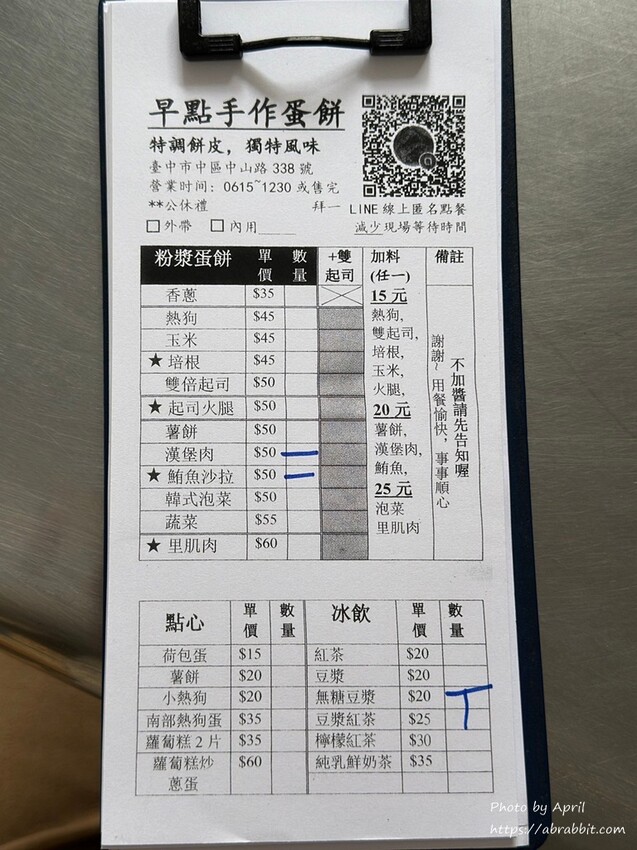 早點手作蛋餅
特調餅皮，獨特風味
臺中市中區中山路 338 號
營業时间：0615~1230 或售完
**公休禮拜一 LINE 線上匿名點餐
□外帶 □內用____ 減少現場等待時間
粉漿蛋餅 單價 數量 +雙起司 加料(任一) 備註
香蔥 $35
熱狗 $45
玉米 $45
★ 培根 $45
雙倍起司 $50
★ 起司火腿 $50
薯餅 $50
漢堡肉 $50 一
★ 鮪魚沙拉 $50 一
韓式泡菜 $50
蔬菜 $55
★ 里肌肉 $60
15 元
熱狗,
雙起司,
培根,
玉米,
火腿,
20 元
薯餅,
漢堡肉,
鮪魚,
25 元
泡菜
里肌肉
不加醬請先告知喔
謝謝~用餐愉快，事事順心
點心 單價 數量 冰飲 單價 數量
荷包蛋 $15 紅茶 $20
薯餅 $20 豆漿 $20
小熱狗 $20 無糖豆漿 $20
南部熱狗蛋 $35 豆漿紅茶 $25
蘿蔔糕 2 片 $35 檸檬紅茶 $30
蘿蔔糕炒蔥蛋 $60 純乳鮮奶茶 $35
Photo by April
https://abrabbit.com